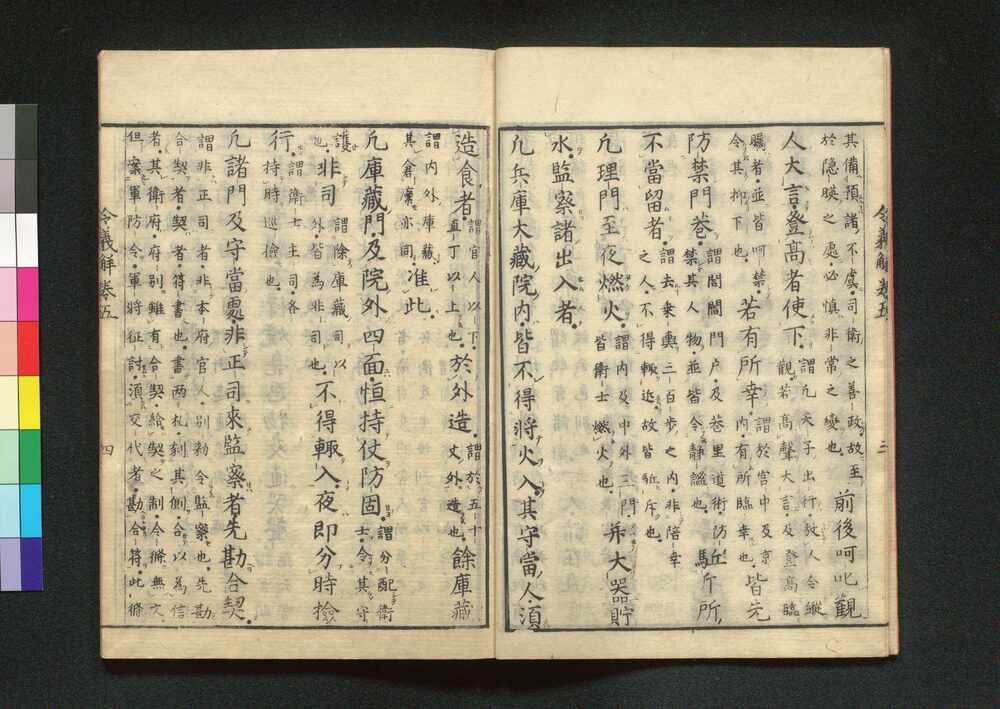 其備預諸不虞司衛之善政故至
於隠暎之處必慎非常之變也
前後呵叱觀
人大言登高者使下
謂凡天子出行敎人令縱
觀若高聲大言及登高臨
矚者並皆呵禁
令其抑下也
若有所幸
謂於宮中及京
内有所臨幸也
皆先
防禁門巷
謂閭閻門戸及巷里道術防止
禁其人物並皆令静謐也
駈斥所
不當留者
謂去乗輿三百歩之内非陪幸
之人不得輙近故皆駈斥也
凡理門至夜燃火
謂内及中外三門
皆衛士燃火也
并大器貯
水監察諸出入者
凡兵庫大藏院内皆不得将火入其守當人須
造食者
謂官人以下
直丁以上也
於外造
謂於五十
丈外造也
餘庫藏
謂内外庫藏
其倉廩亦同
准此
凡庫藏門及院外四面恒持仗防固
謂分配衛
士令其守
護
也
非司
謂除庫藏司以
外皆為非司也
不得輙入夜即分時撿
行
謂衛士主司各
持時巡撿也
凡諸門及守當處非正司来監察者先勘合契
謂非正司者非本府官人別勅令監察也先勘
合契者契者符書也書両札刻其側合以為信
者其衛府府別雖有合契給契之制令條無文
但案軍防令軍将征討須交代者勘合符此條
令義解巻五
二
令義解巻五
四